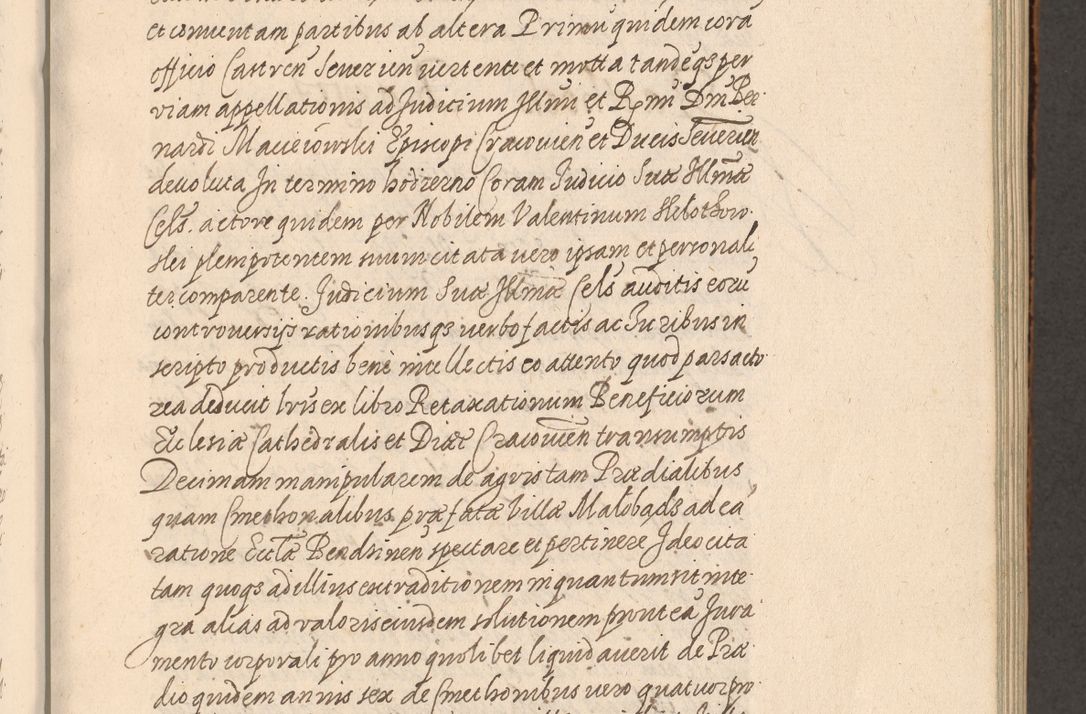 et conventam partibus ab altera Primũ quidem corã
officio Castren̄ Severien̄ vertente et mota tandeqs per
viam appellationis ad Judicium Illmi et Rmi Dni Ber
nardi Macieiowski Episcopi Cracovien̄ et Ducis Severien̄
devoluta In termino hodierno Coram Judicio Suæ Illmæ
Cels. actore quidem per Nobilem Valentinum
plenipotentem suum citata vero ipsam et personali
ter comparente. Judicium Suæ Illmæ Cels auditis eorũ
controversijs rationibusqs verbo factis ac Iuribus in
scripto productis bene intellectis eo attento quod pars acto
rea deducit lr̄is ex libro Retaxationum Beneficiorum
Ecclesiæ Cathedralis et Diæc Cracovien̄ transumptis
Decimam manipularem de agris tam Prædialibus
quam Cmethonalibus præfatæ villæ Malobadz ad eã
ratione Ecclæ Bendzinen̄ spectare et pertinere Ideo cita
tam quoqs ad illius extraditionem in quantum sit inte
gra alias ad valoris eiusdem solutionem prout eã Jura
mento corporali pro anno quolibet liquidaverit de Præ
dio quidem annis sex de Cmethonibus vero quatuor pro